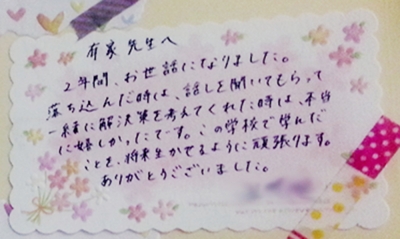 有家先生へ
2年間、お世話になりました。
落ち込んだ時は、話しを聞いてもらって
一緒に解決策を考えてくれた時は、本当
に嬉しかったです。この学校で学んだ
ことを、将来生かせるように頑張ります。
ありがとうございました。